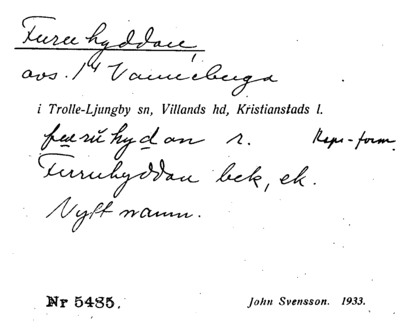 Furuhyddan,
avs. 1⁴ Vanneberga
i Trolle-Ljungby sn, Villands hd, Kristianstads l.
furuhydan r. Reps-form.
Furuhyddan bek, ek.
Nytt namn.
Nr 5485. John Svensson. 1933.